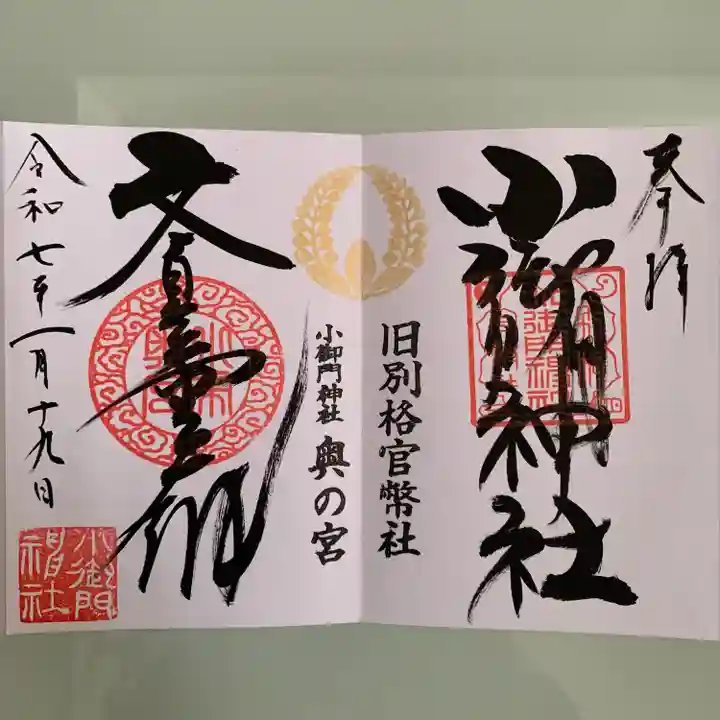 奉拝
小御門神社
旧別格官幣社
小御門神社 奥の宮
文貞
令和七年一月十九日
小御門
神社